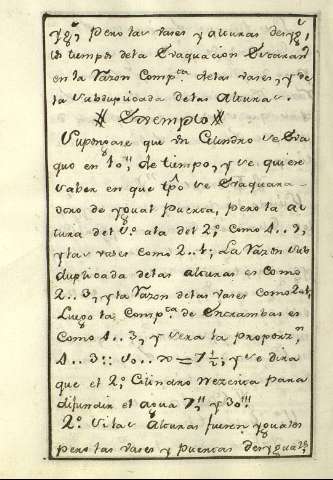 pero las vases y alturas desyg.s
los tiempos de la Evaquacion Estaran
en la Razon Comp.ta de las vases, y de
la subduplicada de las Alturas.
Exemplo
Supongase que vn Cilindro se Eva
quo en 10'' de tiempo, y se quiere
saber en que tpõ se Evaquara
otro de ygual Puerta, pero la al
tura del 1.º a la del 2.º como 4..9,
y las vases como 2..1; La Razon sub
duplicada de las alturas es como
2..3, y la Razon de las vases como 2..1,
Luego la Comp.ta de Entrambas es
como 4..3, y sera la proporz.n
4..3::10..x=7½, y se dira
que el 2.º Cilindro Nezecita para
difundir el agua 7'' y 30'''
2.º Si las Alturas fuesen yguales
pero las vases y Puertas desygua.s